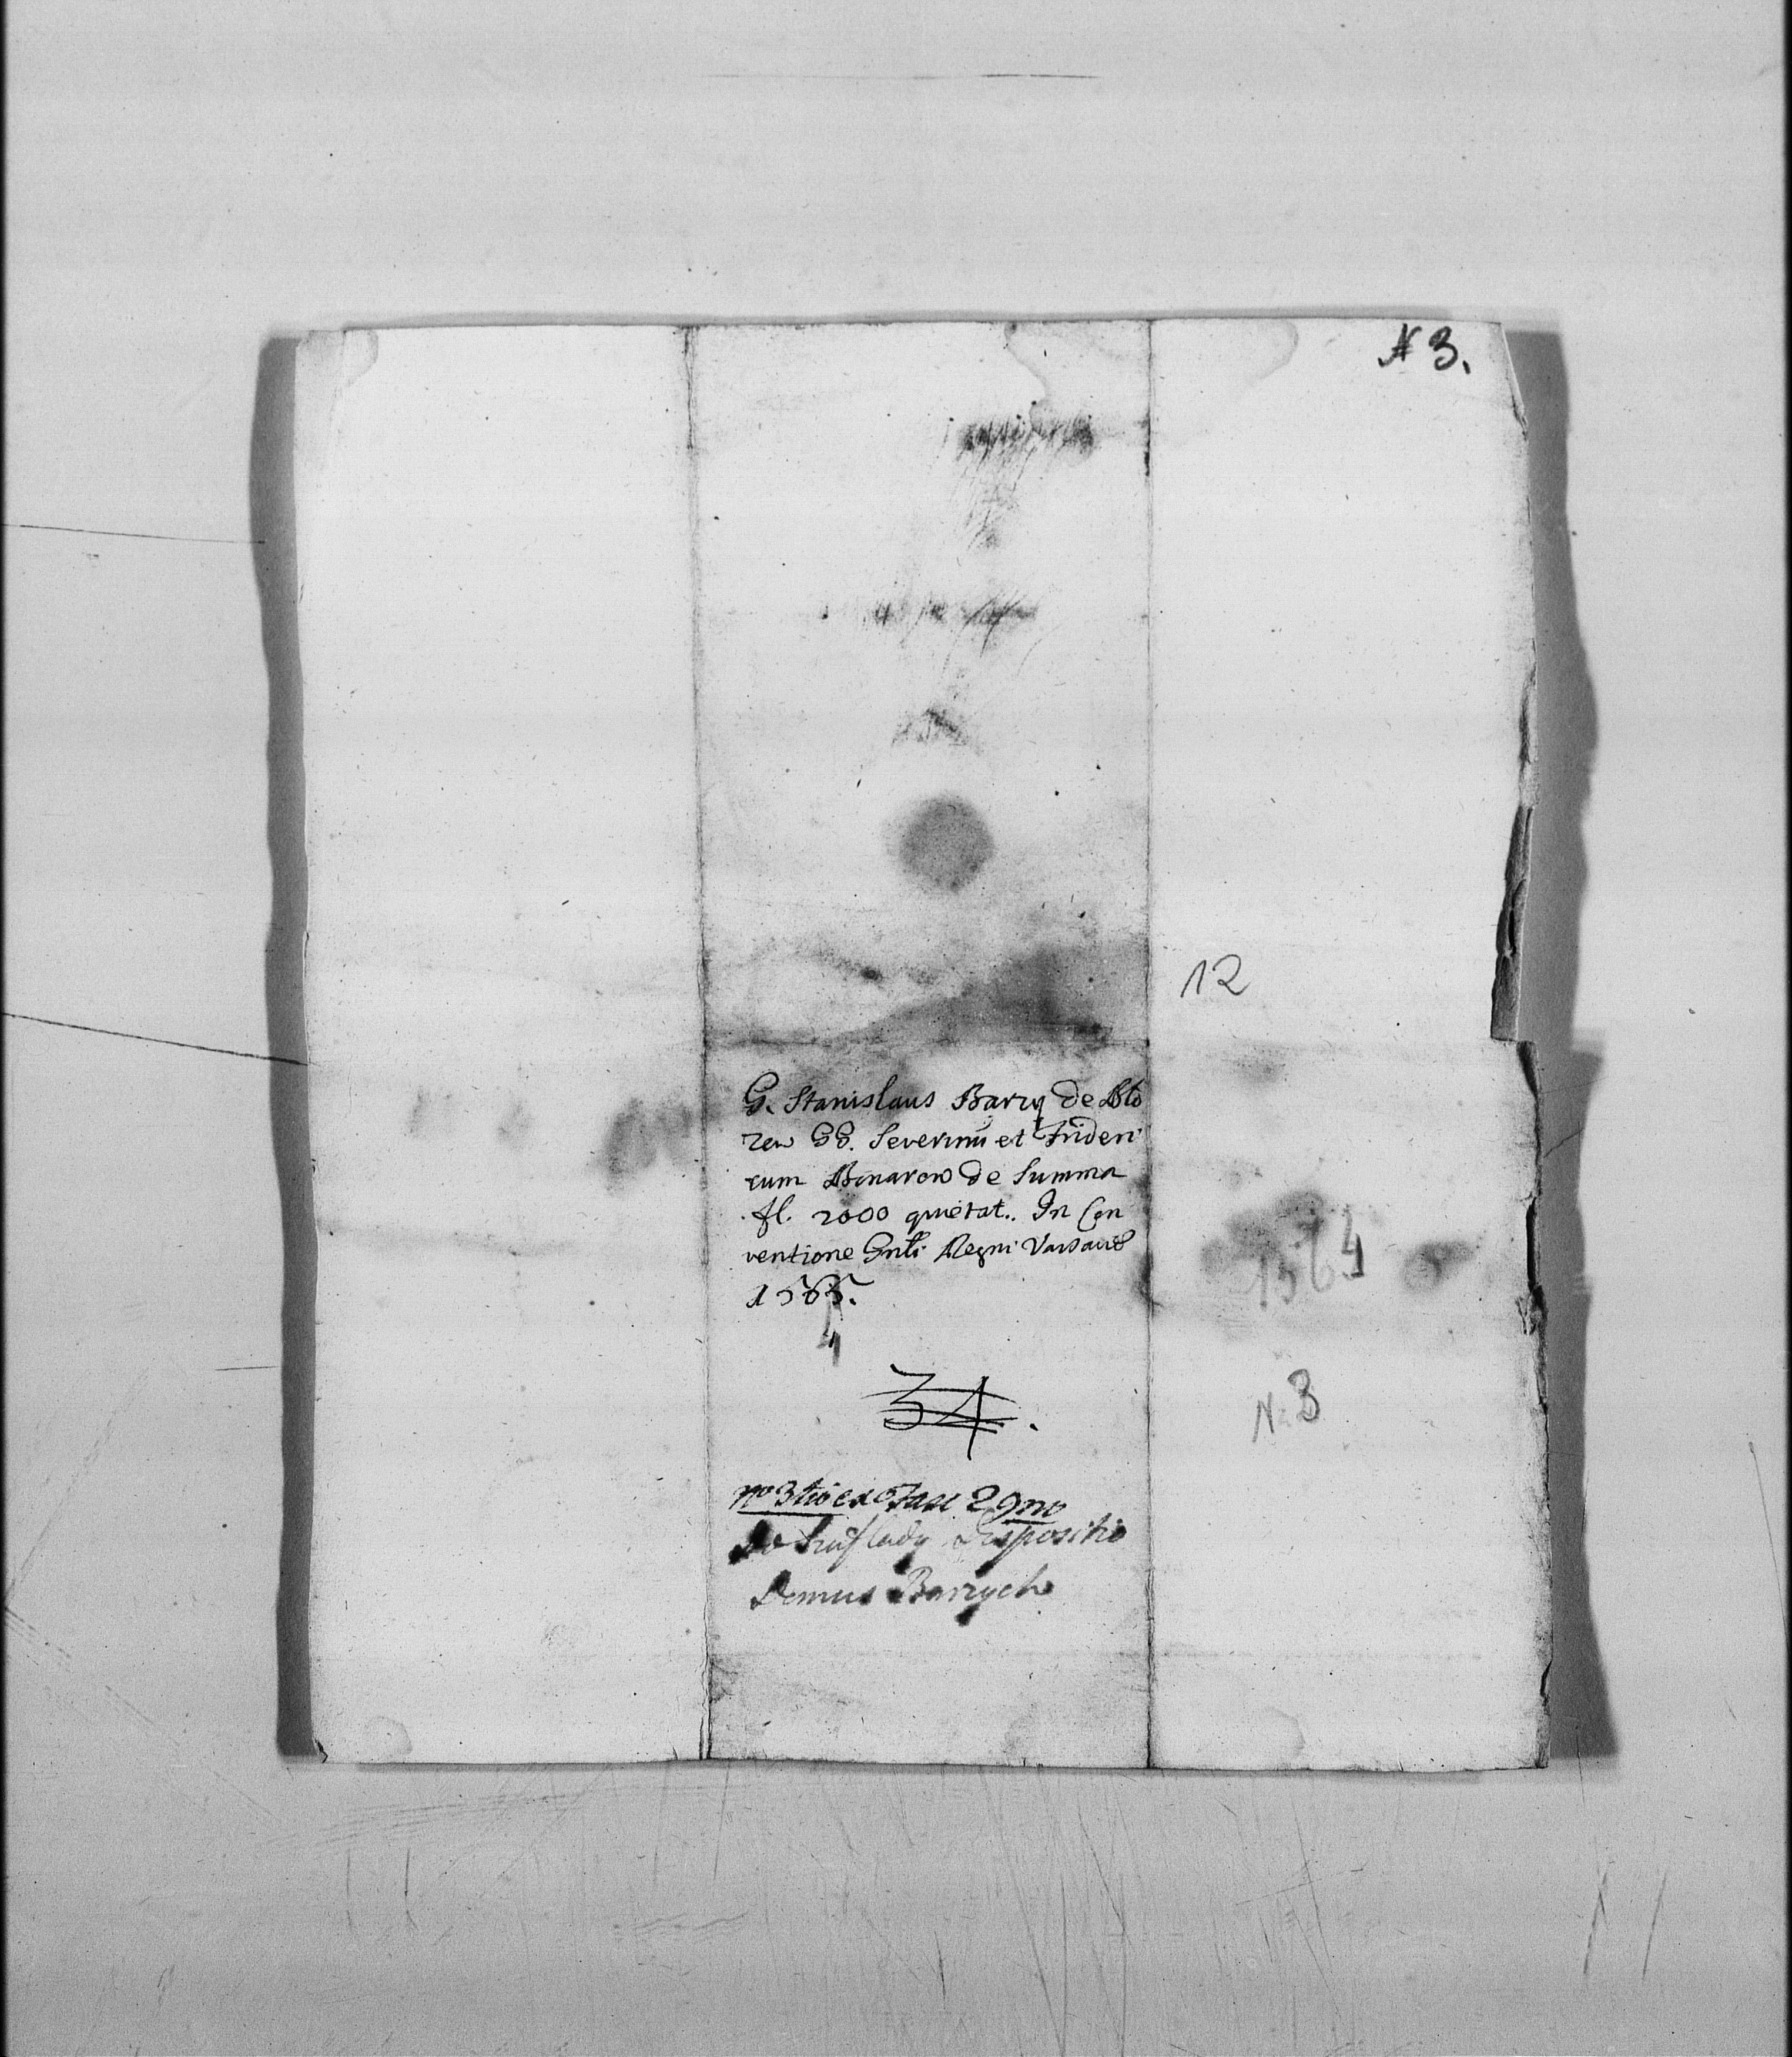 N 3.
12
G. Stanislaus Barzy de Blo
zew GG. Severinū et Frideri
cum Bonarow de Summa
fl. 2000 quietat. In Con
ventione Gnli Regni Varsaviē
1565.
4
34.
1564
N. 3
No 3tio ex Fasc 29no
Do Szuflady Dispositio
Domus Barzych